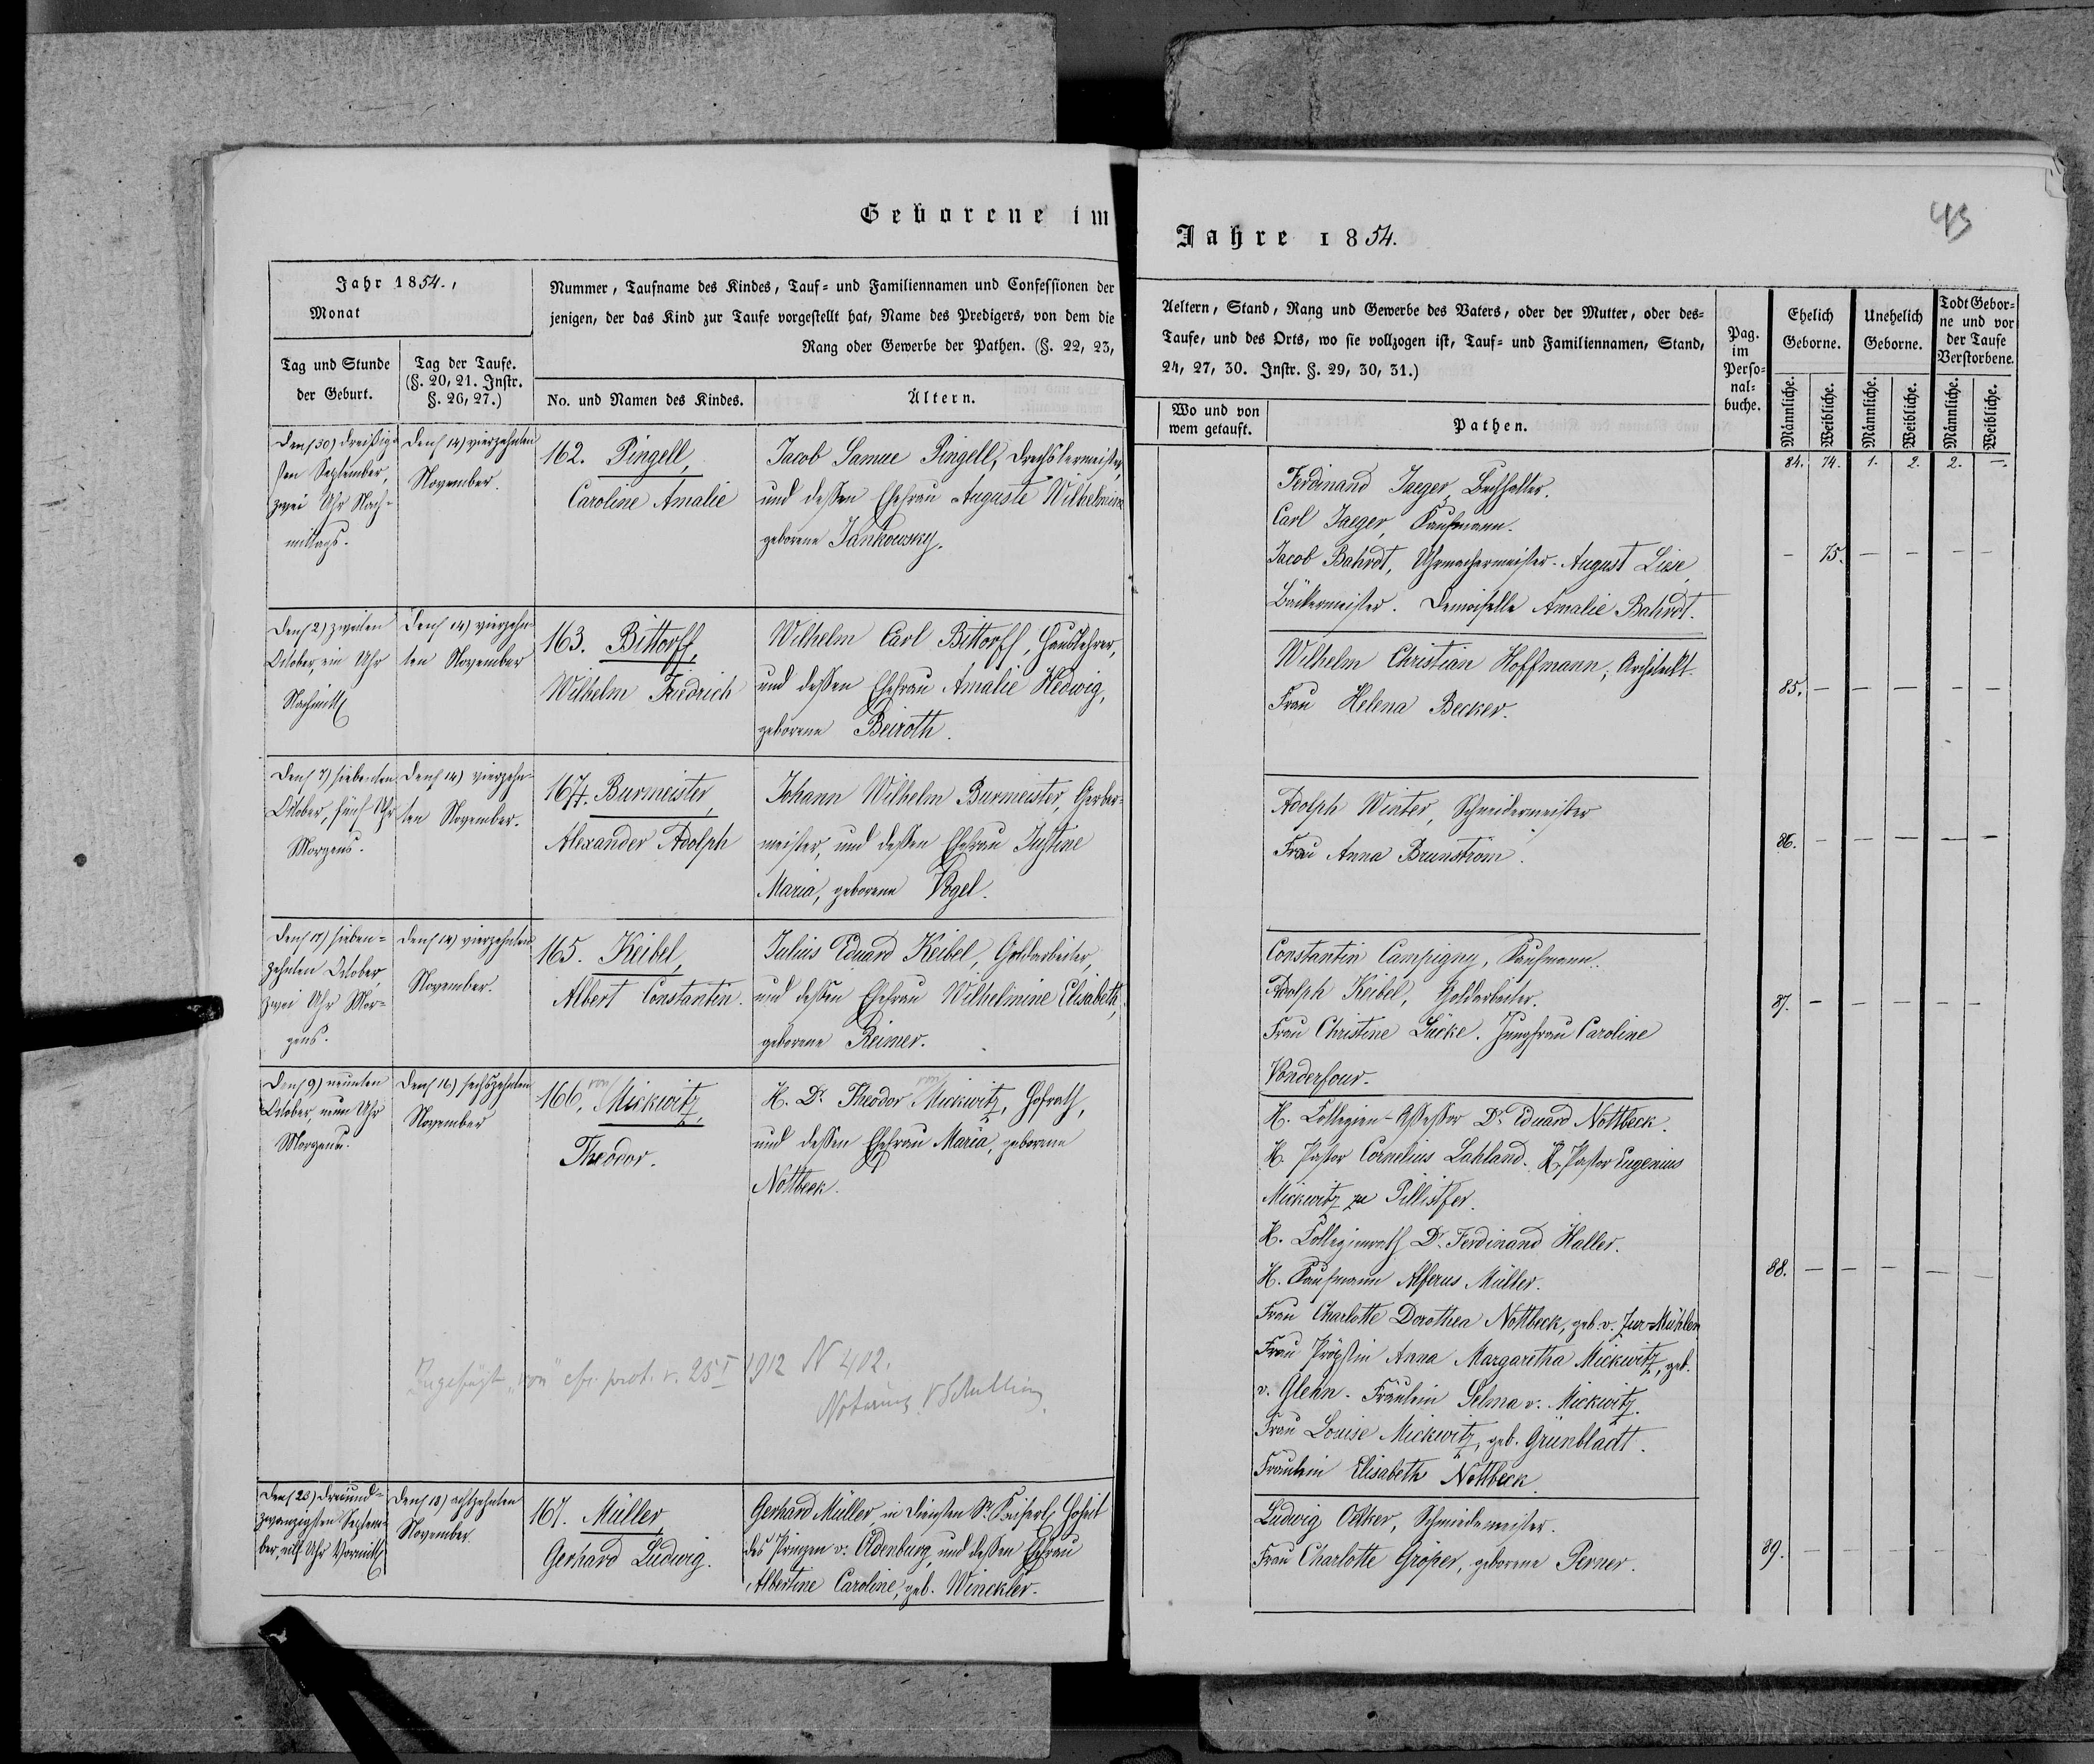 Geborene im
Jahr 1854.,
Monat
Tag und Stunde
der Geburt.
Tag der Taufe.
(§. 20, 21. Instr.
§. 26, 27.)
Nummer, Taufname des Kindes, Tauf- und Familiennamen und Confessionen der
jenigen, der das Kind zur Taufe vorgestellt hat, Name des Predigers, von dem die
Rang oder Gewerbe der Pathen. (§. 22, 23,
No. und Namen des Kindes.
Ältern.
Den (30) dreißig-
sten September,
zwei Uhr Nach-
mittags.
Den (14) vierzehnten
November.
162. Pingell,
Caroline Amalie
Jacob Samue Pingell, Drechslermeister,
und deßen Ehefrau Auguste Wilhelmine
geborene Jankowsky.
Den (2) zweiten
October, ein Uhr
Nachmitt
Den (14) vierzehn-
ten November
163. Bittorff,
Wilhelm Friedrich
Wilhelm Carl Bittorff, Hauslehrer,
und deßen Ehefrau Amalie Hedwig,
geborene Beiroth.
Den (7) siebenten
October, fünf Uhr
Morgens.
Den (14) vierzehn-
ten November.
164. Burmeister,
Alexander Adolph
Johann Wilhelm Burmeister, Gerber-
meister, und deßen Ehefrau Justine
Maria, geborene Vogel.
Den (17) sieben-
zehnten October,
zwei Uhr Mor-
gens.
Den (14) vierzehnten
November.
165. Keibel,
Albert Constantin.
Julius Eduard Keibel, Goldarbeiter,
und deßen Ehefrau Wilhelmine Elisabeth,
geborene Reimer.
Den (9) neunten
October, neun Uhr
Morgens.
Den (16) sechszehnten
November
von
166. Mickwitz,
Theodor.
von
H. Dr. Theodor Mickwitz, Hofrath,
und deßen Ehefrau Maria, geborene
Nottbeck.
Zugefügt "von" cfr. prot. v. 25 I 1912 N 402.
Notarius
Den (23) dreiund-
zwanzigsten Septem-
ber, eilf Uhr Vormitt
Den (18) achtzehnten
November.
167. Müller,
Gerhard Ludwig.
Gerhard Müller, in Diensten Sr. Kaiserl. Hoheit
des Prinzen v. Oldenburg, und deßen Ehefrau
Albertine Caroline, geb. Winckler.
Jahre 1854.
43
Aeltern, Stand, Rang und Gewerbe des Vaters, oder der Mutter, oder des-
Taufe, und des Orts, wo sie vollzogen ist, Tauf- und Familiennamen, Stand,
24, 27, 30. Instr. §. 29, 30, 31.)
Wo und von
wem getauft.
Pathen.
Pag.
im
Perso-
nal-
buche.
Ehelich
Geborne.
Unehelich
Geborne.
Todt Gebor-
ne und vor
der Taufe
Verstorbene.
Männliche.
Weibliche.
Männliche.
Weibliche.
Männliche.
Weibliche.
84. 74. 1. 2. 2. —.
Ferdinand Jaeger, Buchhalter.
Carl Jaeger, Kaufmann.
Jacob Bahrdt, Uhrmachermeister. August Liese,
Bäckermeister. Demoiselle Amalie Bahrdt.
— 75. — — — —
Wilhelm Christian Hoffmann, Architekt.
Frau Helena Becker.
85. — — — — —
Adolph Winter, Schneidermeister
Frau Anna Brunström.
86. — — — — —
Constantin Campigny, Kaufmann.
Adolph Keibel, Goldarbeiter.
Frau Christine Lücke. Jungfrau Caroline
Vonderfour.
87. — — — — —
H. Collegien-Assessor Dr. Eduard Nottbeck.
H. Pastor Cornelius Lahland. H. Pastor Eugenius
Mickwitz zu Pillistfer.
H. Collegienrath Dr. Ferdinand Haller.
H. Kaufmann Alferus Müller.
Frau Charlotte Dorothea Nottbeck, geb. v. Zur-Mühlen
Frau Pröpstin Anna Margaretha Mickwitz, geb.
v. Glehn. Fräulein Selma v. Mickwitz.
Frau Louise Mickwitz, geb. Grünbladt.
Fräulein Elisabeth Nottbeck.
88. — — — — —
Ludwig Oelker, Schmiedemeister.
Frau Charlotte Gröper, geborene Perner.
89. — — — — —